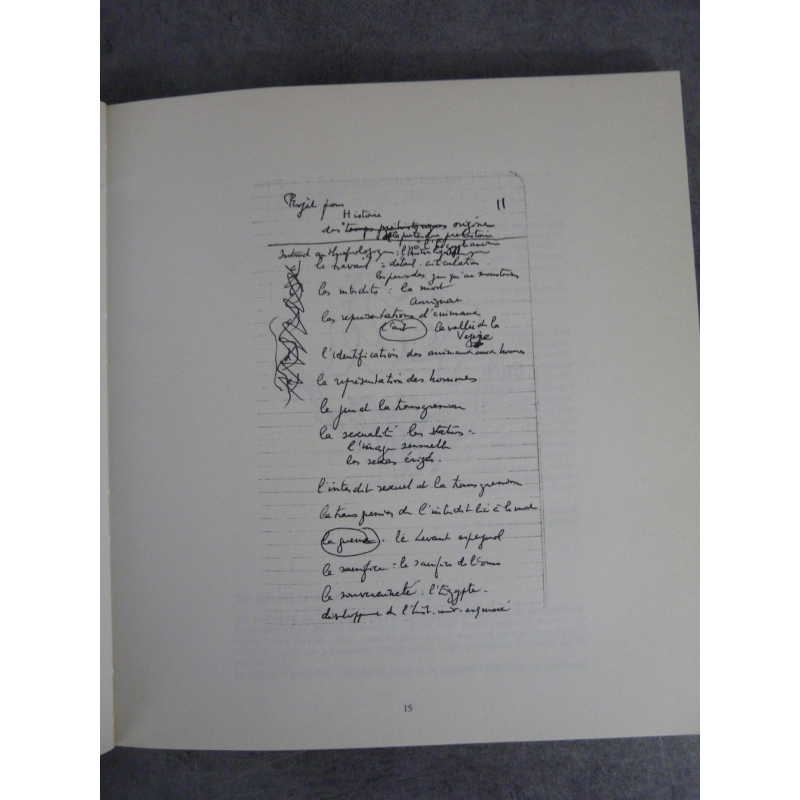 Projet pour 11
Histoire
des temps préhistoriques origine
préhistoire
à l'Egypte
le travail : détail. circulation
les interdits : la mort
Aurignac
les représentations d'animaux
l'art la vallée de la
Vézère
l'identification des animaux aux hommes
la représentation des hommes
le jeu et la transgression
la sexualité les statues =
l'image sensuelle
les sexes érigés.
l'interdit sexuel et la transgression
la transgression de l'interdit lié à la mort
la guerre. le Levant espagnol
le sacrifice : le sacrifice de l'ours
la souveraineté. l'Egypte.
de l'hist. univ. esquissé
15